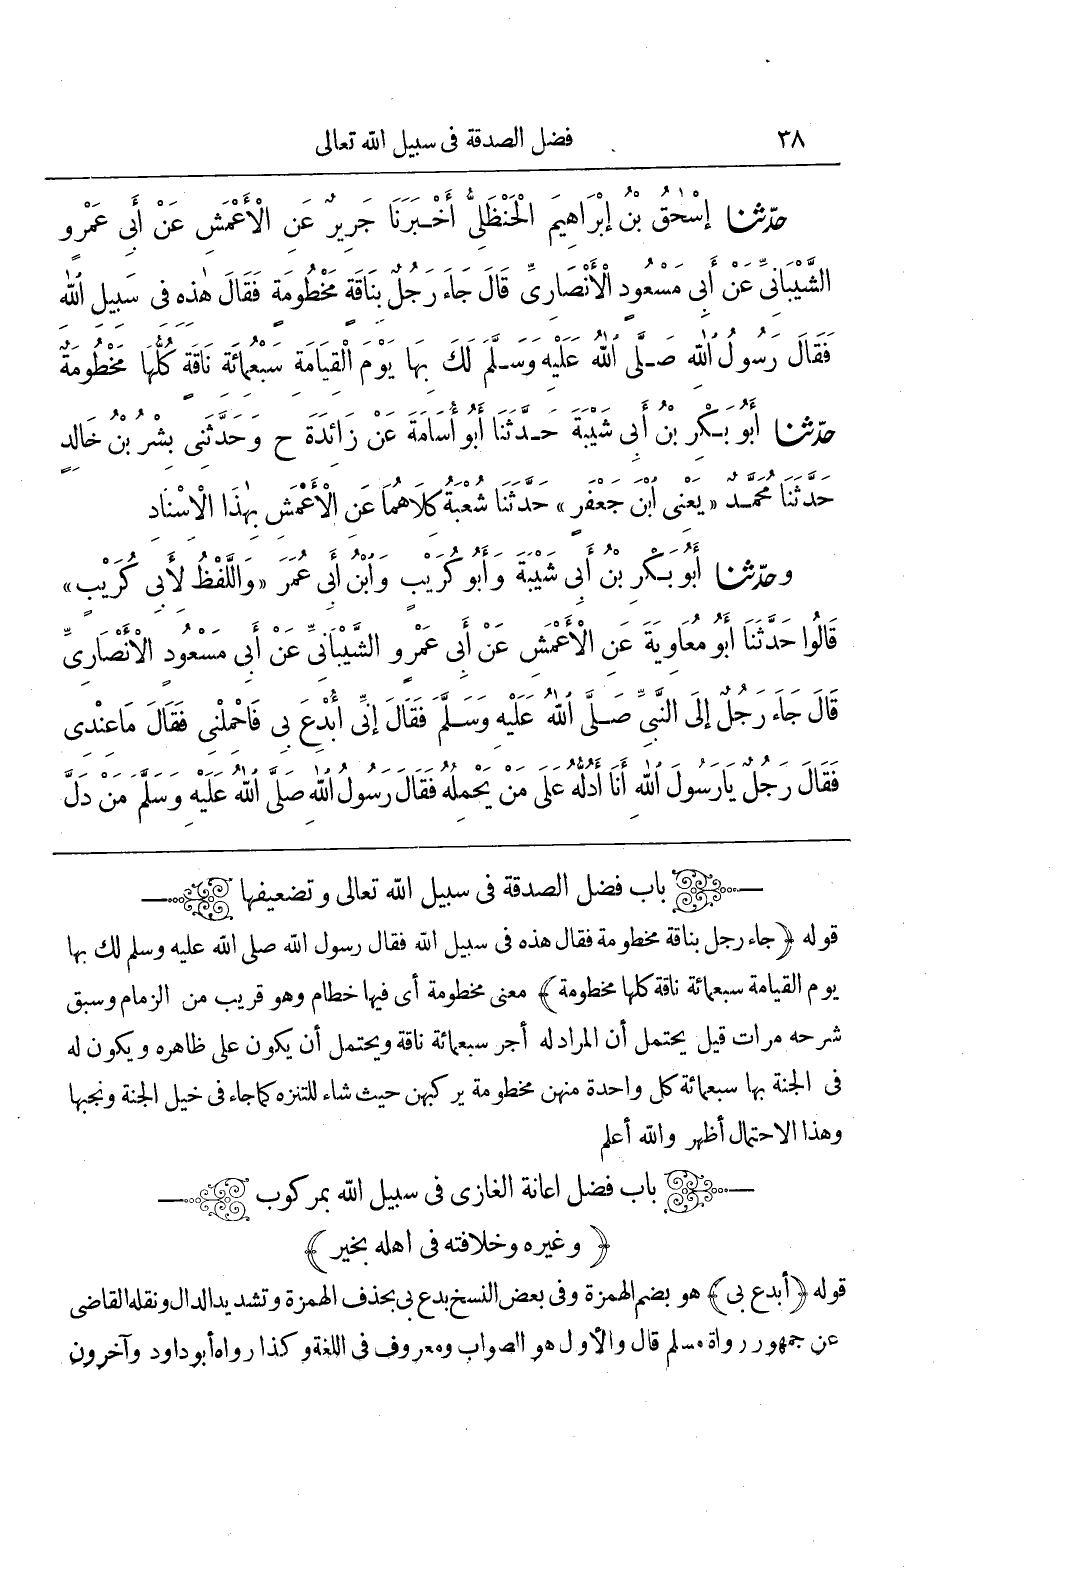 ٣٨ فضل الصدقة فى سبيل الله تعالى
حدّثنا إِسْحٰقُ بْنُ إِبْرَاهِيمَ الْحَنْظَلِىُّ أَخْبَرَنَا جَرِيرٌ عَنِ الْأَعْمَشِ عَنْ أَبِى عَمْرٍو
الشَّيْبَانِىِّ عَنْ أَبِى مَسْعُودٍ الْأَنْصَارِىِّ قَالَ جَاءَ رَجُلٌ بِنَاقَةٍ مَخْطُومَةٍ فَقَالَ هٰذِهِ فِى سَبِيلِ اللهِ
فَقَالَ رَسُولُ اللهِ صَلَّى اللهُ عَلَيْهِ وَسَلَّمَ لَكَ بِهَا يَوْمَ الْقِيَامَةِ سَبْعُمِائَةِ نَاقَةٍ كُلُّهَا مَخْطُومَةٌ
حدّثنا أَبُو بَكْرِ بْنُ أَبِى شَيْبَةَ حَدَّثَنَا أَبُو أُسَامَةَ عَنْ زَائِدَةَ ح وَحَدَّثَنِى بِشْرُ بْنُ خَالِدٍ
حَدَّثَنَا مُحَمَّدٌ «يَعْنِى ابْنَ جَعْفَرٍ» حَدَّثَنَا شُعْبَةُ كِلَاهُمَا عَنِ الْأَعْمَشِ بِهٰذَا الْإِسْنَادِ
وحدّثنا أَبُو بَكْرِ بْنُ أَبِى شَيْبَةَ وَأَبُو كُرَيْبٍ وَابْنُ أَبِى عُمَرَ «وَاللَّفْظُ لِأَبِى كُرَيْبٍ»
قَالُوا حَدَّثَنَا أَبُو مُعَاوِيَةَ عَنِ الْأَعْمَشِ عَنْ أَبِى عَمْرٍو الشَّيْبَانِىِّ عَنْ أَبِى مَسْعُودٍ الْأَنْصَارِىِّ
قَالَ جَاءَ رَجُلٌ إِلَى النَّبِىِّ صَلَّى اللهُ عَلَيْهِ وَسَلَّمَ فَقَالَ إِنِّى أُبْدِعَ بِى فَاحْمِلْنِى فَقَالَ مَا عِنْدِى
فَقَالَ رَجُلٌ يَا رَسُولَ اللهِ أَنَا أَدُلُّهُ عَلَى مَنْ يَحْمِلُهُ فَقَالَ رَسُولُ اللهِ صَلَّى اللهُ عَلَيْهِ وَسَلَّمَ مَنْ دَلَّ
باب فضل الصدقة فى سبيل الله تعالى وتضعيفها
قوله ﴿جاء رجل بناقة مخطومة فقال هذه فى سبيل الله فقال رسول الله صلى الله عليه وسلم لك بها
يوم القيامة سبعمائة ناقة كلها مخطومة﴾ معنى مخطومة أى فيها خطام وهو قريب من الزمام وسبق
شرحه مرات قيل يحتمل أن المراد له أجر سبعمائة ناقة ويحتمل أن يكون على ظاهره ويكون له
فى الجنة بها سبعمائة كل واحدة منهن مخطومة يركبهن حيث شاء للتنزه كما جاء فى خيل الجنة ونجبها
وهذا الاحتمال أظهر والله أعلم
باب فضل اعانة الغازى فى سبيل الله بمركوب
﴿وغيره وخلافته فى اهله بخير﴾
قوله ﴿أبدع بى﴾ هو بضم الهمزة وفى بعض النسخ بدع بى بحذف الهمزة وتشديد الدال ونقله القاضى
عن جمهور رواة مسلم قال والأول هو الصواب ومعروف فى اللغة وكذا رواه أبو داود وآخرون